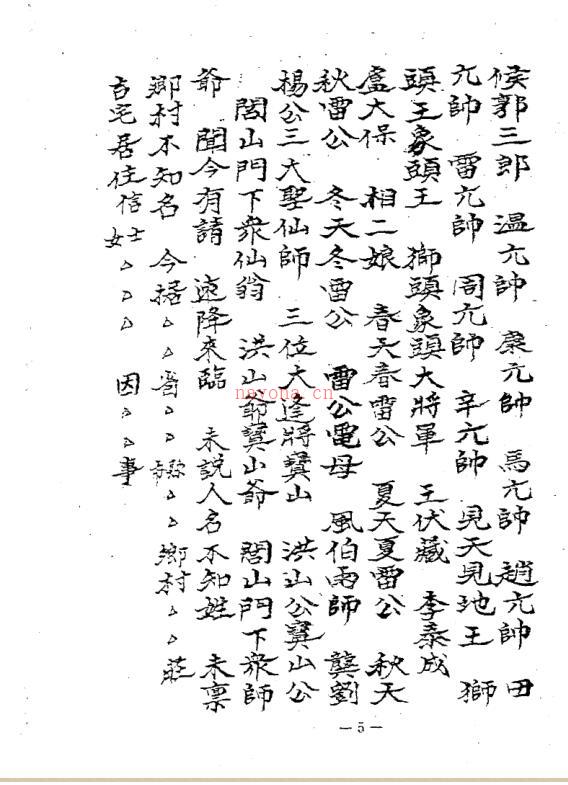 候郭三郎 温元帥 康元帥 馬元帥 趙元帥 田
元帥 雷元帥 周元帥 辛元帥 見天見地王 獅
頭王象頭王 獅頭象頭大將軍 王伏藏 李泰成
盧大保 相二娘 春天春雷公 夏天夏雷公 秋天
秋雷公 冬天冬雷公 雷公電母 風伯雨師 龔劉
楊公三大聖仙師 三位大逢將寶山 洪山公寶山公
閭山門下衆仙翁 洪山爺寶山爺 閭山門下衆師
爺 聞今有請 速降來臨 未說人名不知姓 未禀
鄉村不知名 今據△△省△△縣△△鄉村△△莊
吉宅居住信士女△△△ 因△△事
—5—
nayona.cn